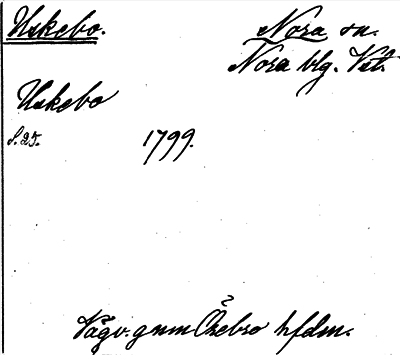 Uskebo. Nora sn.
Nora blg. Vstl.
Uskebo
S. 25. 1799.
Vägv. gnm Örebro hfdm.